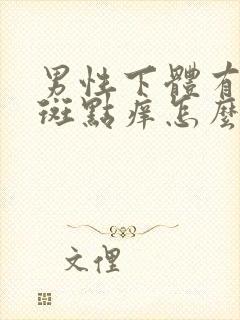 男性下體有
斑點痒怎麼
文俚